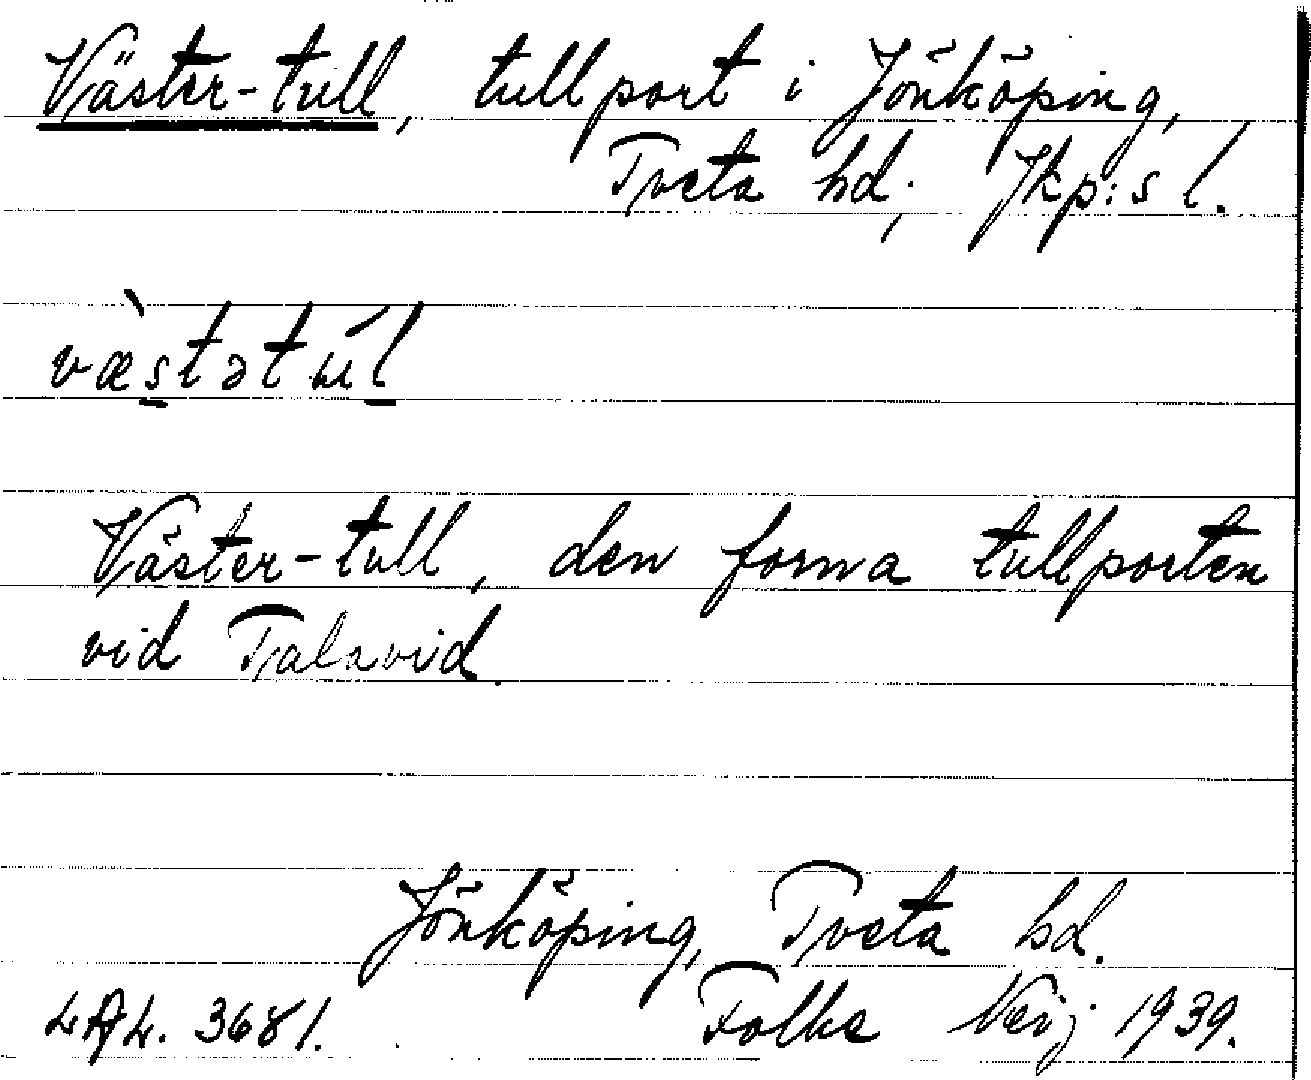 Väster-tull, tullport i Jönköping,
Tveta hd; Jkp:s l.
væ̀stətúl
Väster-tull, den forna tullporten
vid Talavid.
Jönköping, Tveta hd.
LAL. 3681. Folke Neij 1939.